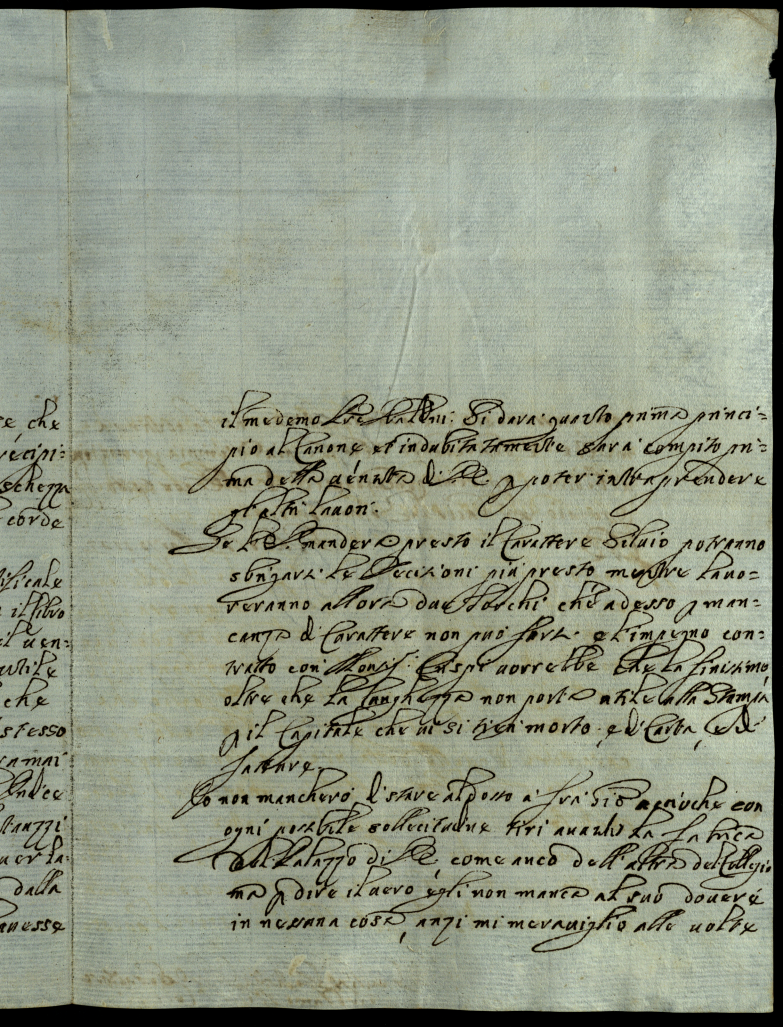 se, che
recipi:
schezza
corde
tificale
il libro
il uen:
utile
che
stesso
ramai
Indice
stanzzi
uer la:
dalla
hauesse
il medemo Pre Baldini. Si darà quanto prima princi:
pio al Canone et indubitatamente sarà compito pri:
ma della uenuta di VE p poter intraprendere
gl'altri lauori.
Se VE manderà presto il Carattere Siluio potranno
sbrigarsi le Decisioni più presto mentre lauo:
reranno allora due Torchi che adesso p man:
canza di Carattere non può farsi. e l'impegno con:
tratto con Monsr. Crispi uorrebbe che la finissimo,
oltre che la lunghezza non porta utile alla Stampa
p il Capitale che ui si tien morto e di Carta, e di
fatture.
Io non mancherò di stare alposto a frà Gio acciuche con
ogni possibile sollecitudine tiri auanti la fabrica
del Palazzo di VE, come anco dell'altra del Collegio
ma p dire il uero egli non manca al suo douere
in nessuna cosa, anzi mi merauiglio alle uolte